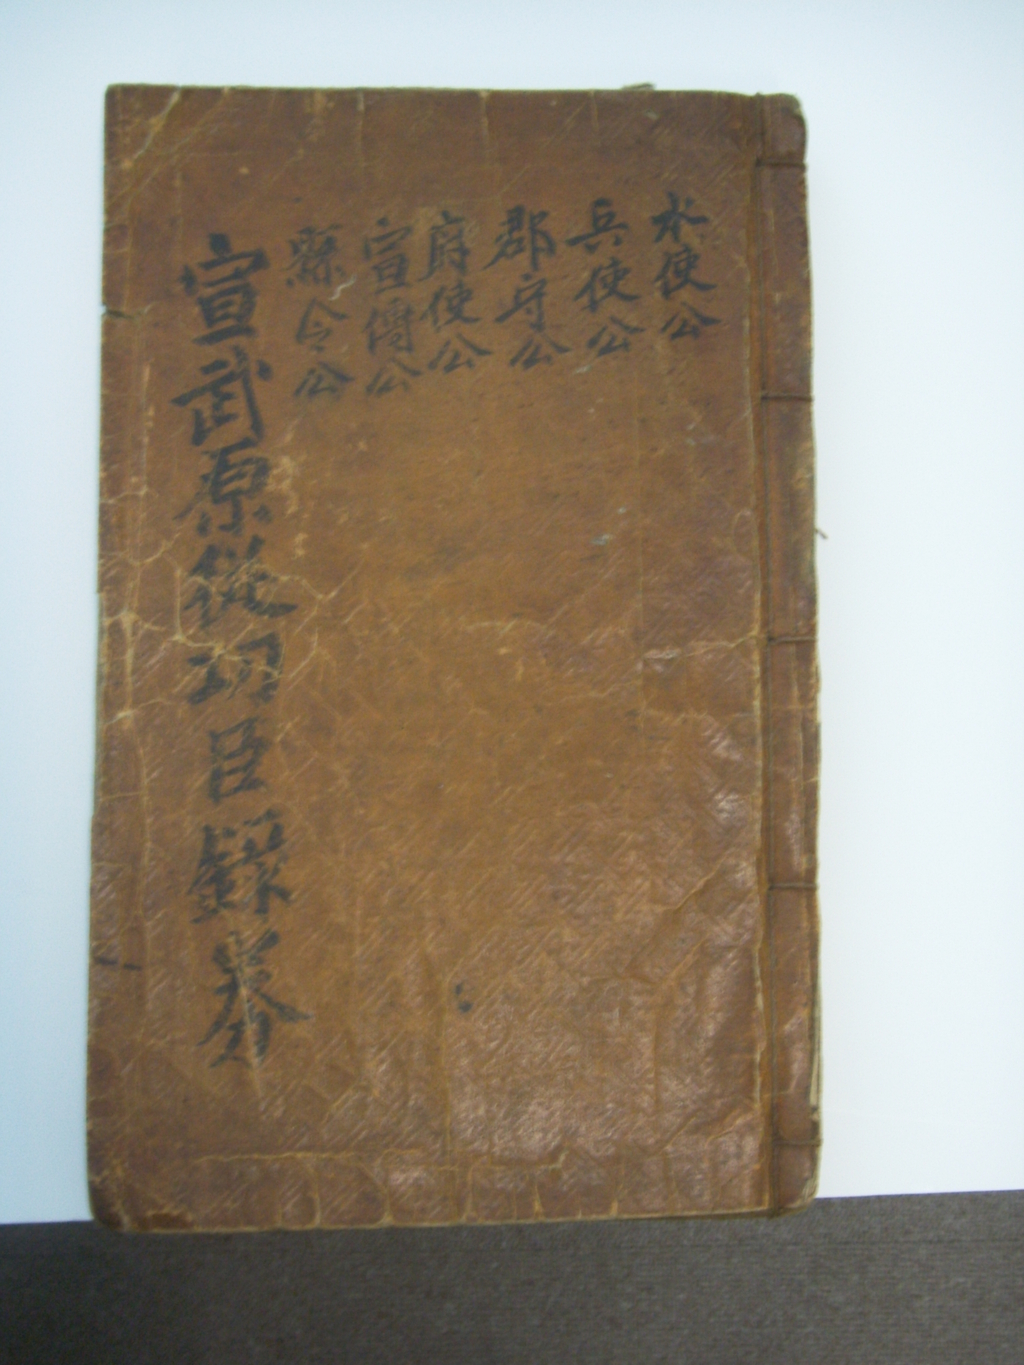 水使公
兵使公
郡守公
府使公
宣傳公
縣令公
宣武原從功臣錄券